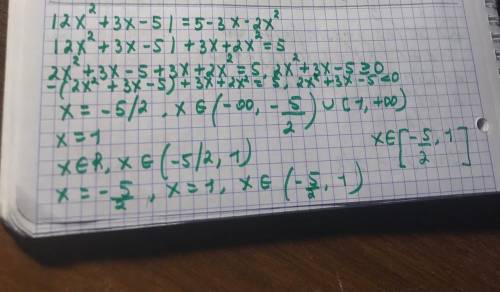 |2x² + 3x - 5| = 5 - 3x - 2x²
|2x² + 3x - 5| + 3x + 2x² = 5
2x² + 3x - 5 + 3x + 2x² = 5, 2x² + 3x - 5 ≥ 0
-(2x² + 3x - 5) + 3x + 2x² = 5, 2x² + 3x - 5 < 0
x = -5/2, x ∈ (-∞, -5/2) ∪ (1, +∞)
x = 1
x ∈ R, x ∈ (-5/2, 1)
x = -5/2, x = 1, x ∈ (-5/2, 1)
x ∈ [-5/2, 1]